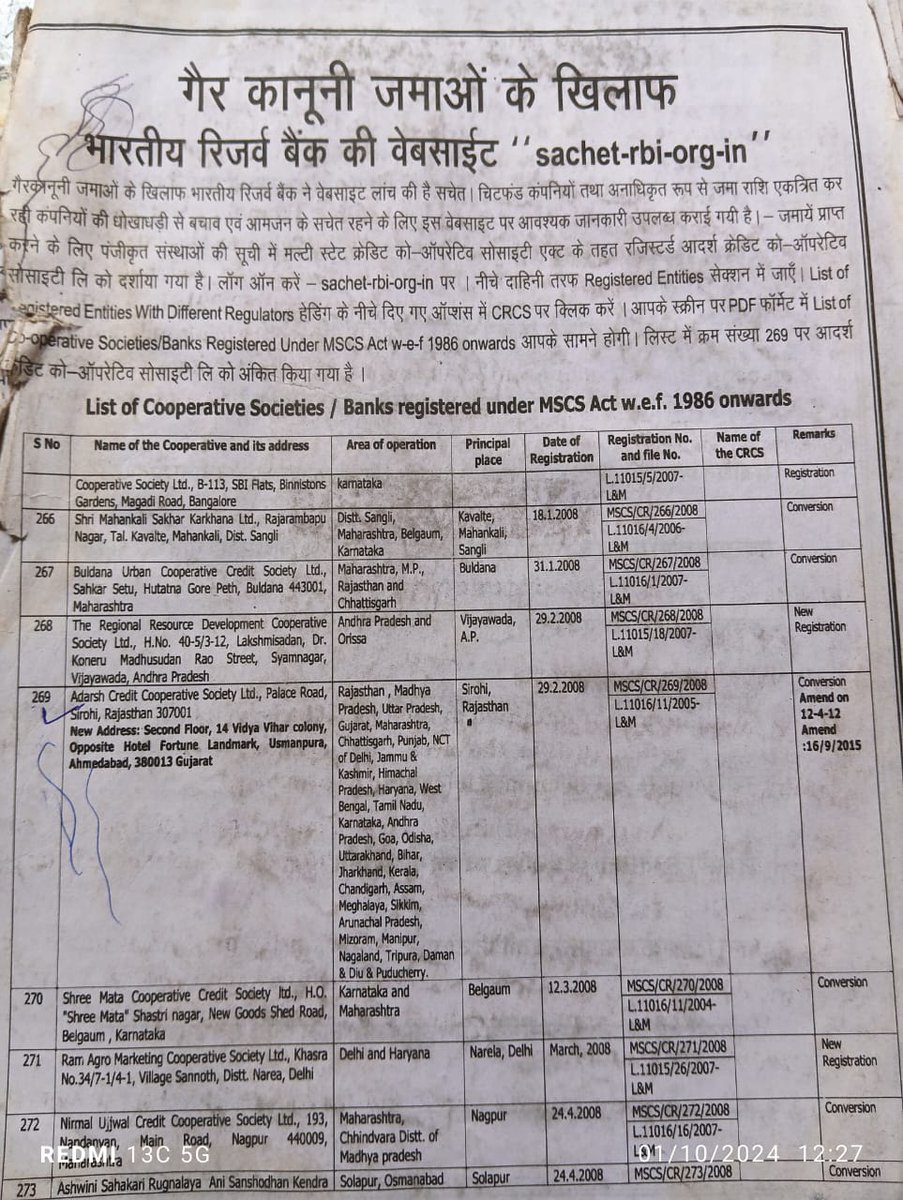 गैर कानूनी जमाओं के खिलाफ
भारतीय रिजर्व बैंक की वेबसाईट ‘‘sachet-rbi-org-in’’
गैरकानूनी जमाओं के खिलाफ भारतीय रिजर्व बैंक ने वेबसाइट लांच की है सचेत। चिटफंड कंपनियों तथा अनाधिकृत रूप से जमा राशि एकत्रित कर
रही कंपनियों की धोखाधड़ी से बचाव एवं आमजन के सचेत रहने के लिए इस वेबसाइट पर आवश्यक जानकारी उपलब्ध कराई गयी है।– जमायें प्राप्त
करने के लिए पंजीकृत संस्थाओं की सूची में मल्टी स्टेट क्रेडिट को–ऑपरेटिव सोसाइटी एक्ट के तहत रजिस्टर्ड आदर्श क्रेडिट को–ऑपरेटिव
सोसाइटी लि को दर्शाया गया है। लॉग ऑन करें – sachet-rbi-org-in पर । नीचे दाहिनी तरफ Registered Entities सेक्शन में जाएँ। List of
egistered Entities With Different Regulators हेडिंग के नीचे दिए गए ऑप्शंस में CRCS पर क्लिक करें । आपके स्क्रीन पर PDF फॉर्मेट में List of
o-operative Societies/Banks Registered Under MSCS Act w-e-f 1986 onwards आपके सामने होगी। लिस्ट में क्रम संख्या 269 पर आदर्श
डिट को–ऑपरेटिव सोसाइटी लि को अंकित किया गया है ।
List of Cooperative Societies / Banks registered under MSCS Act w.e.f. 1986 onwards
S No Name of the Cooperative and its address Area of operation Principal place Date of Registration Registration No. and file No. Name of the CRCS Remarks
Cooperative Society Ltd., B-113, SBI Flats, Binnistons karnataka L.11015/5/2007- Registration
Gardens, Magadi Road, Bangalore L&M
266 Shri Mahankali Sakhar Karkhana Ltd., Rajarambapu Distt. Sangli, Kavalte, 18.1.2008 MSCS/CR/266/2008 Conversion
Nagar, Tal. Kavalte, Mahankali, Dist. Sangli Maharashtra, Belgaum, Mahankali, L.11016/4/2006-
Karnataka Sangli L&M
267 Buldana Urban Cooperative Credit Society Ltd., Maharashtra, M.P., Buldana 31.1.2008 MSCS/CR/267/2008 Conversion
Sahkar Setu, Hutatna Gore Peth, Buldana 443001, Rajasthan and L.11016/1/2007-
Maharashtra Chhattisgarh L&M
268 The Regional Resource Development Cooperative Andhra Pradesh and Vijayawada, 29.2.2008 MSCS/CR/268/2008 New
Society Ltd., H.No. 40-5/3-12, Lakshmisadan, Dr. Orissa A.P. L.11015/18/2007- Registration
Koneru Madhusudan Rao Street, Syamnagar, L&M
Vijayawada, Andhra Pradesh
269 Adarsh Credit Cooperative Society Ltd., Palace Road, Rajasthan , Madhya Sirohi, 29.2.2008 MSCS/CR/269/2008 Conversion
Sirohi, Rajasthan 307001 Pradesh, Uttar Pradesh, Rajasthan L.11016/11/2005- Amend on
New Address: Second Floor, 14 Vidya Vihar colony, Gujarat, Maharashtra, L&M 12-4-12
Opposite Hotel Fortune Landmark, Usmanpura, Chhattisgarh, Punjab, NCT Amend
Ahmedabad, 380013 Gujarat of Delhi, Jammu & :16/9/2015
Kashmir, Himachal
Pradesh, Haryana, West
Bengal, Tamil Nadu,
Karnataka, Andhra
Pradesh, Goa, Odisha,
Uttarakhand, Bihar,
Jharkhand, Kerala,
Chandigarh, Assam,
Meghalaya, Sikkim,
Arunachal Pradesh,
Mizoram, Manipur,
Nagaland, Tripura, Daman
& Diu & Puducherry.
270 Shree Mata Cooperative Credit Society ltd., H.O. Karnataka and Belgaum 12.3.2008 MSCS/CR/270/2008 Conversion
"Shree Mata" Shastri nagar, New Goods Shed Road, Maharashtra L.11016/11/2004-
Belgaum , Karnataka L&M
271 Ram Agro Marketing Cooperative Society Ltd., Khasra Delhi and Haryana Narela, Delhi March, 2008 MSCS/CR/271/2008 New
No.34/7-1/4-1, Village Sannoth, Distt. Narea, Delhi L.11015/26/2007- Registration
L&M
272 Nirmal Ujjwal Credit Cooperative Society Ltd., 193, Maharashtra, Nagpur 24.4.2008 MSCS/CR/272/2008 Conversion
Nandanvan, Main Road, Nagpur 440009, Chhindvara Distt. of L.11016/16/2007-
Maharashtra Madhya pradesh L&M
273 Ashwini Sahakari Rugnalaya Ani Sanshodhan Kendra Solapur, Osmanabad Solapur 24.4.2008 MSCS/CR/273/2008 Conversion
REDMI 13C 5G 01/10/2024 12:27